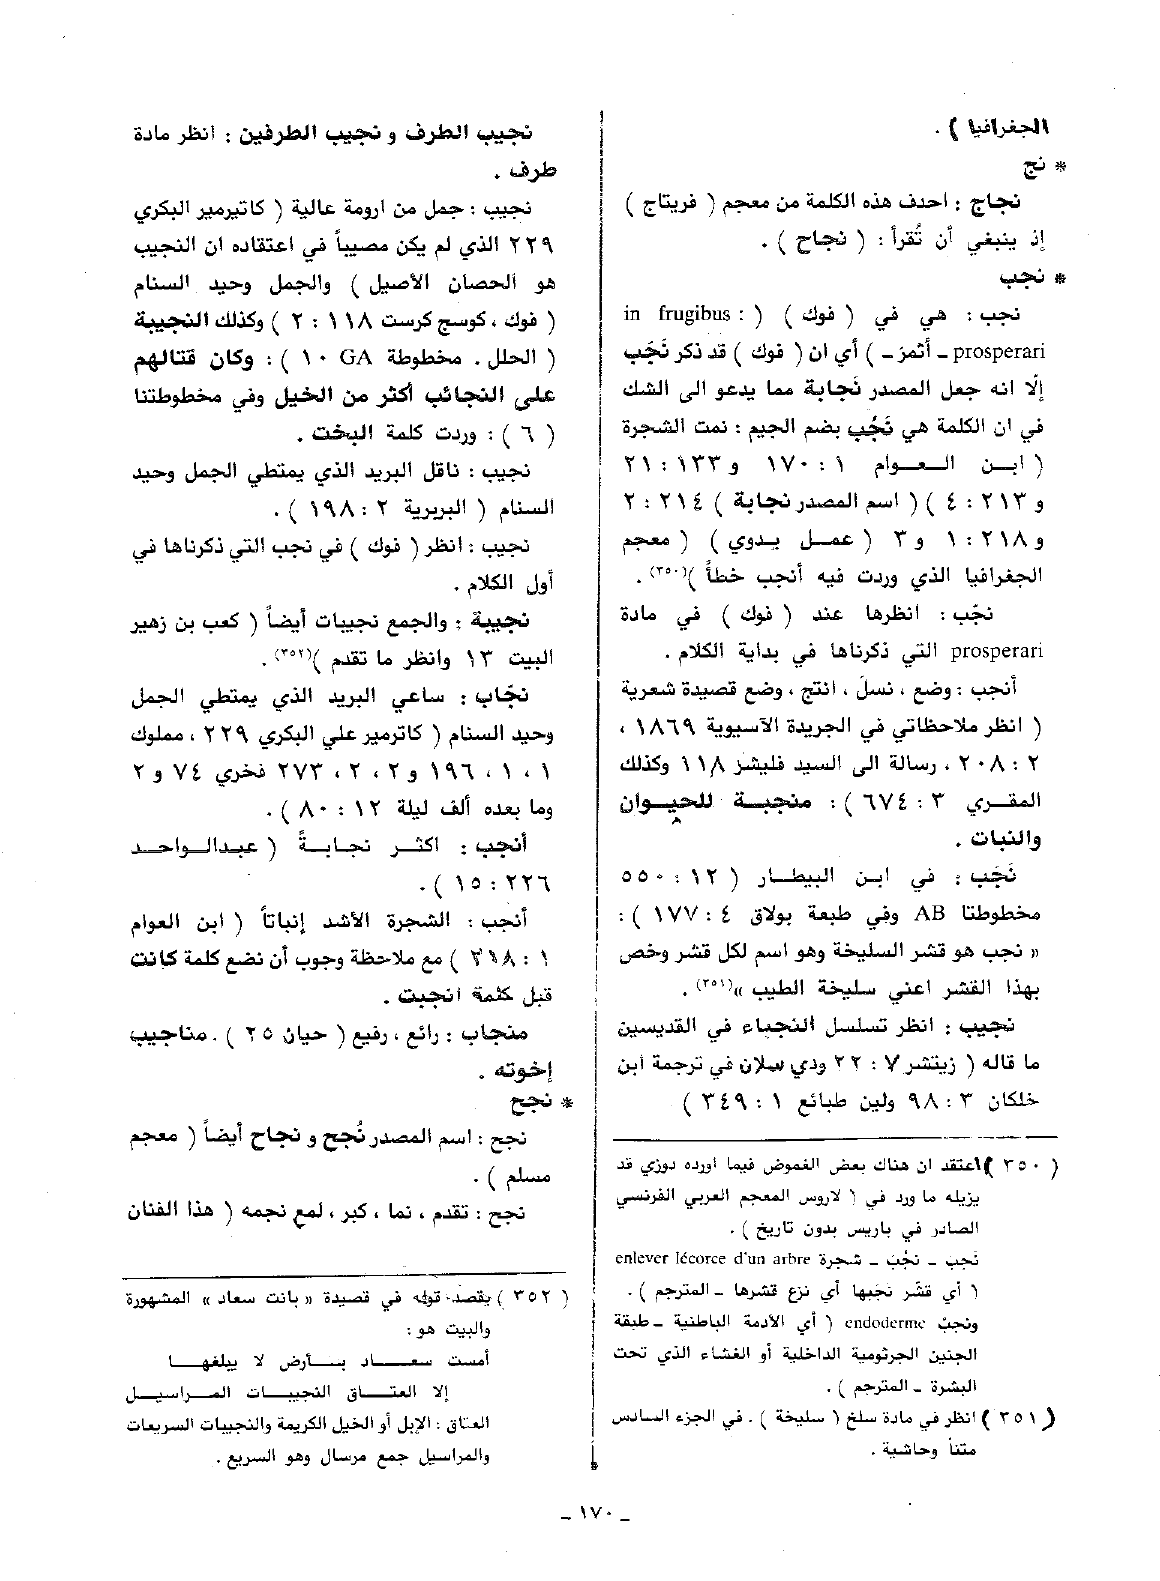 الجغرافيا ) .
* نج
نجاج : احدف هذه الكلمة من معجم ( فريتاج )
إذ ينبغي أن تُقرأ : ( نجاح ) .
* نجب
نجب : هي في ( فوك ) ( : in frugibus
prosperari ـ أثمز ـ ) أي ان ( فوك ) قد ذكر نَجَب
إلّا انه جعل المصدر نَجابة مما يدعو الى الشك
في ان الكلمة هي نَجُب بضم الجيم : نمت الشجرة
( ابـن العـوام ١ : ١٧٠ و ١٣٣ : ٢١
و ٢١٣ : ٤ ) ( اسم المصدر نجابة ) ٢١٤ : ٢
و ٢١٨ : ١ و ٣ ( عمـل يـدوي ) ( معجم
الجغرافيا الذي وردت فيه أنجب خطأً )(٣٥٠) .
نجّب : انظرها عند ( فوك ) في مادة
prosperari التي ذكرناها في بداية الكلام .
أنجب : وضع ، نسلَ ، انتج ، وضع قصيدة شعرية
( انظر ملاحظاتي في الجريدة الآسيوية ١٨٦٩ ،
٢ : ٢٠٨ ، رسالة الى السيد فليشر ١١٨ وكذلك
المقـري ٣ : ٦٧٤ ) : منجبـة للحيوان
والنبات .
نَجَب : في ابـن البيطـار ( ١٢ : ٥٥٠
مخطوطتا AB وفي طبعة بولاق ٤ : ١٧٧ ) :
« نجب هو قشر السليخة وهو اسم لكل قشر وخص
بهذا القشر اعني سليخة الطيب »(٣٥١) .
نجيب : انظر تسلسل النجباء في القديسين
ما قاله ( زيتشر ٧ : ٢٢ ودي سلان في ترجمة ابن
خلكان ٣ : ٩٨ ولين طبائع ١ : ٣٤٩ )
( ٣٥٠ ) اعتقد ان هناك بعض الغموض فيما أورده دوزي قد
يزيله ما ورد في ( لاروس المعجم العربي الفرنسي
الصادر في باريس بدون تاريخ ) .
نَجب ـ نجَبَ ـ شجرة enlever lécorce d'un arbre
( أي قشّر نجَبها أي نزع قشرها ـ المترجم ) .
ونجبٌ endoderme ( أي الأدمة الباطنية ـ طبقة
الجنين الجرثومية الداخلية أو الغشاء الذي تحت
البشرة ـ المترجم ) .
( ٣٥١ ) انظر في مادة سلخ ( سليخة ) . في الجزء السادس
متناً وحاشية .
نجيب الطرف و نجيب الطرفين : انظر مادة
طرف .
نجيب : جمل من ارومة عالية ( كاتيرمير البكري
٢٢٩ الذي لم يكن مصيباً في اعتقاده ان النجيب
هو الحصان الأصيل ) والجمل وحيد السنام
( فوك ، كوسج كرست ١١٨ : ٢ ) وكذلك النجيبة
( الحلل . مخطوطة GA ١٠ ) : وكان قتالهم
على النجائب أكثر من الخيل وفي مخطوطتنا
( ٦ ) : وردت كلمة البخت .
نجيب : ناقل البريد الذي يمتطي الجمل وحيد
السنام ( البربرية ٢ : ١٩٨ ) .
نجيب : انظر ( فوك ) في نجب التي ذكرناها في
أول الكلام .
نجيبة : والجمع نجيبات أيضاً ( كعب بن زهير
البيت ١٣ وانظر ما تقدم )(٣٥٢) .
نجّاب : ساعي البريد الذي يمتطي الجمل
وحيد السنام ( كاترمير علي البكري ٢٢٩ ، مملوك
١ ، ١ ، ١٩٦ و ٢ ، ٢ ، ٢٧٣ فخري ٧٤ و ٢
وما بعده ألف ليلة ١٢ : ٨٠ ) .
أنجب : اكثـر نجابـةً ( عبدالـواحـد
٢٢٦ : ١٥ ) .
أنجب : الشجرة الأشد إنباتاً ( ابن العوام
١ : ٣١٨ ) مع ملاحظة وجوب أن نضع كلمة كانت
قبل كلمة انجبت .
منجاب : رائع ، رفيع ( حيان ٢٥ ) . مناجيب
إخوته .
* نجح
نجح : اسم المصدر نُجح و نجاح أيضاً ( معجم
مسلم ) .
نجح : تقدم ، نما ، كبر ، لمع نجمه ( هذا الفنان
( ٣٥٢ ) يقصد قوله في قصيدة « بانت سعاد » المشهورة
والبيت هو :
أمست سعـاد بـأرض لا يبلغهـا
إلا العتـاق النجيبـات المـراسيـل
العتاق : الإبل أو الخيل الكريمة والنجيبات السريعات
والمراسيل جمع مرسال وهو السريع .
ـ ١٧٠ ـ